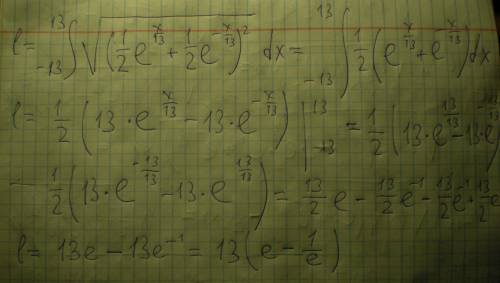 l = ₋₁₃∫¹³ √((1/2 e^(x/13) + 1/2 e^(-x/13))²) dx = ₋₁₃∫¹³ 1/2 (e^(x/13) + e^(-x/13)) dx
l = 1/2 (13 · e^(x/13) - 13 · e^(-x/13)) |₋₁₃¹³ = 1/2 (13 · e^(13/13) - 13 · e^(-13/13))
- 1/2 (13 · e^(-13/13) - 13 · e^(13/13)) = 13/2 e - 13/2 e⁻¹ - 13/2 e⁻¹ + 13/2 e
l = 13e - 13e⁻¹ = 13 (e - 1/e)